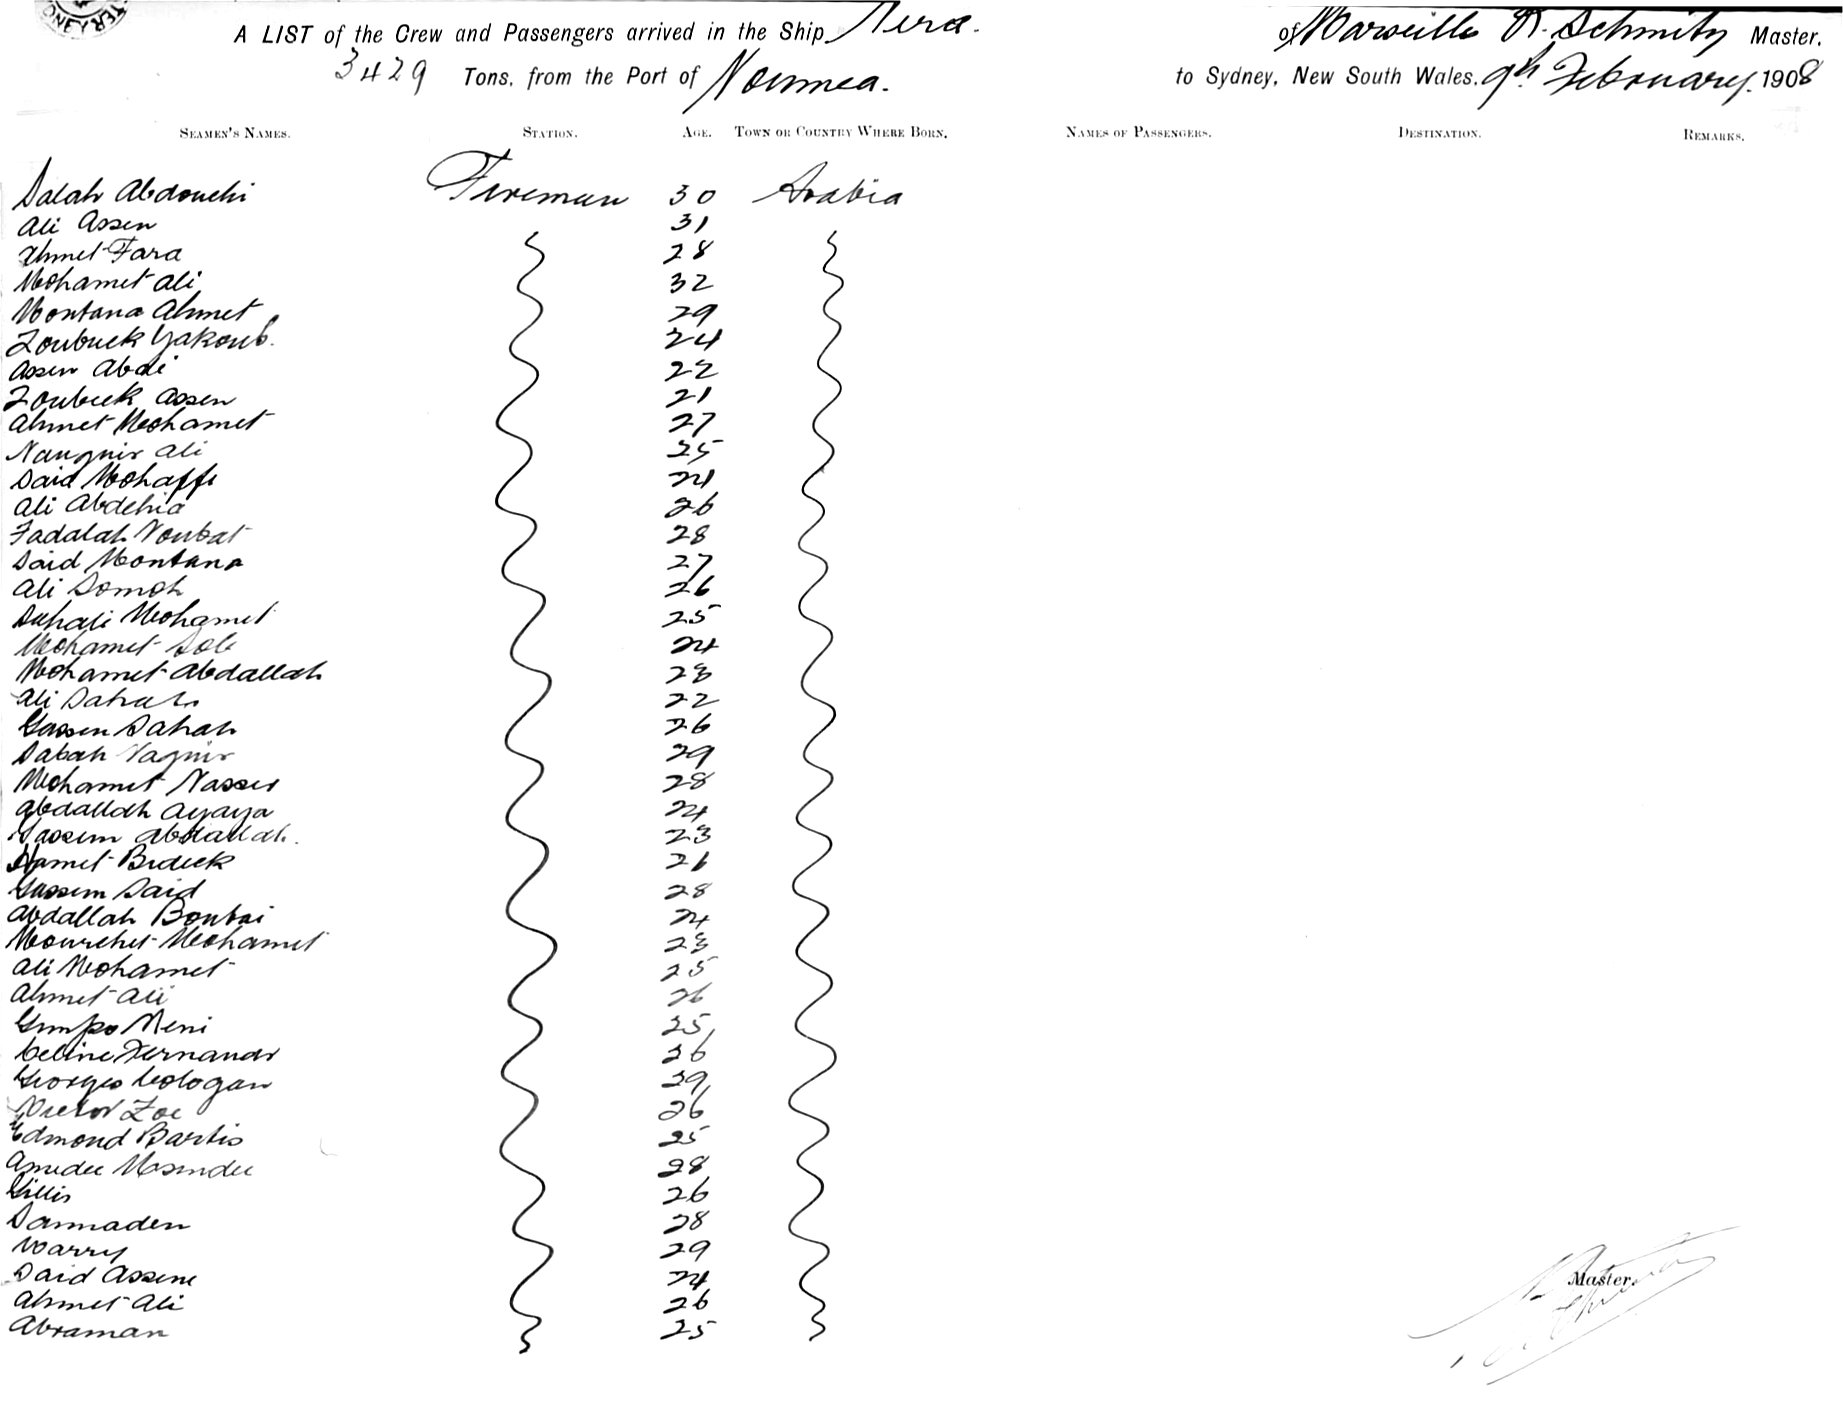 A LIST of the Crew and Passengers arrived in the Ship Nera. of Marseille Schmitz Master.
3429 Tons, from the Port of Noumea. to Sydney, New South Wales. 9th February. 1908
SEAMEN'S NAMES. STATION. AGE. TOWN OR COUNTRY WHERE BORN. NAMES OF PASSENGERS. DESTINATION. REMARKS.
Salah Abdouchi Fireman 30 Arabia
Ali Assen 31
Ahmet Fara 28
Mohamet Ali 32
Montana Ahmet 29
Zoubeck Yakoub. 24
Assen Abdi 22
Zoubeck Assen 21
Ahmet Mohamet 27
Ali 25
Said Mohaffe 24
Ali Abdehia 26
Fadalah Noubat 28
Said Montana 27
Ali Somoh 26
Suhali Mohamet 25
Mohamet 24
Mohamet Abdallah 23
Ali 22
Gassen Sahah 26
Sabah Nagnir 29
Mohamet Nasser 28
Abdallah Ayaya 24
Gassem Abdallah. 23
Hamet Bedeck 26
Gassem Said 28
Abdallah Boubai 24
Mourchet Mohamet 23
Ali Mohamet 25
Ahmet Ali 26
Meni 25
Celine Fernando 26
Georges Cologan 29
Victor Zoe 26
Edmond Bartis 25
Amedee 28
Gillis 26
Sanmaden 28
Warry 29
Said Assene 24
Ahmet Ali 26
Abraman 25
Master.